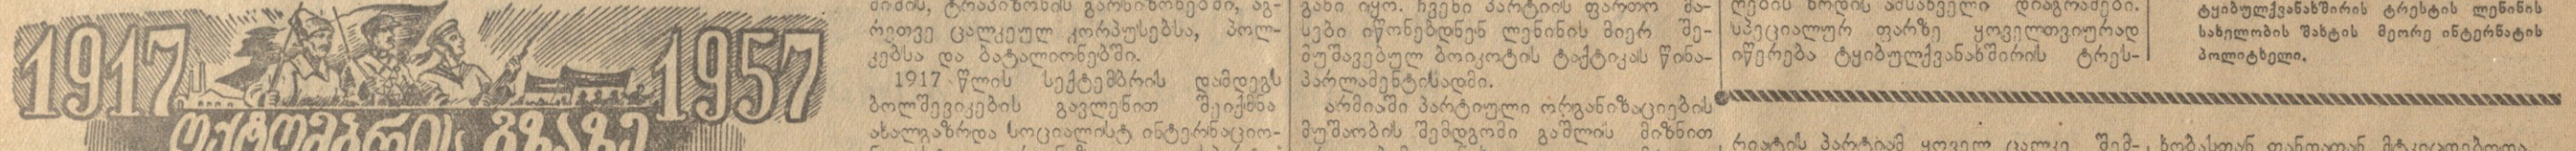 1917 1957
ოქტომბრის გზაზე
რეთვე ცალკეულ კორპუსებსა, პოლ-
კებსა და ბატალიონებში.
1917 წლის სექტემბრის დამდეგს
ბოლშევიკების გავლენით შეიქმნა
ახალგაზრდა სოციალისტ ინტერნაციო-
განი იყო. ჩვენი პარტიის ფართო მა-
სები იწონებდნენ ლენინის მიერ შე-
მუშავებულ ბოიკოტის ტაქტიკას წინა-
პარლამენტისადმი.
არმიაში პარტიული ორგანიზაციების
მუშაობის შემდგომი გაშლის მიზნით
სპეციალურ ფარზე ყოველთვიურად
იწერება ტყიბულქვანახშირის ტრეს-
რიატის პარტიამ ყოველ ცალკე შემ-
ტყიბულქვანახშირის ტრესტის ლენინის
სახელობის შახტის მეორე ინტერნატის
პოლიტხელი.